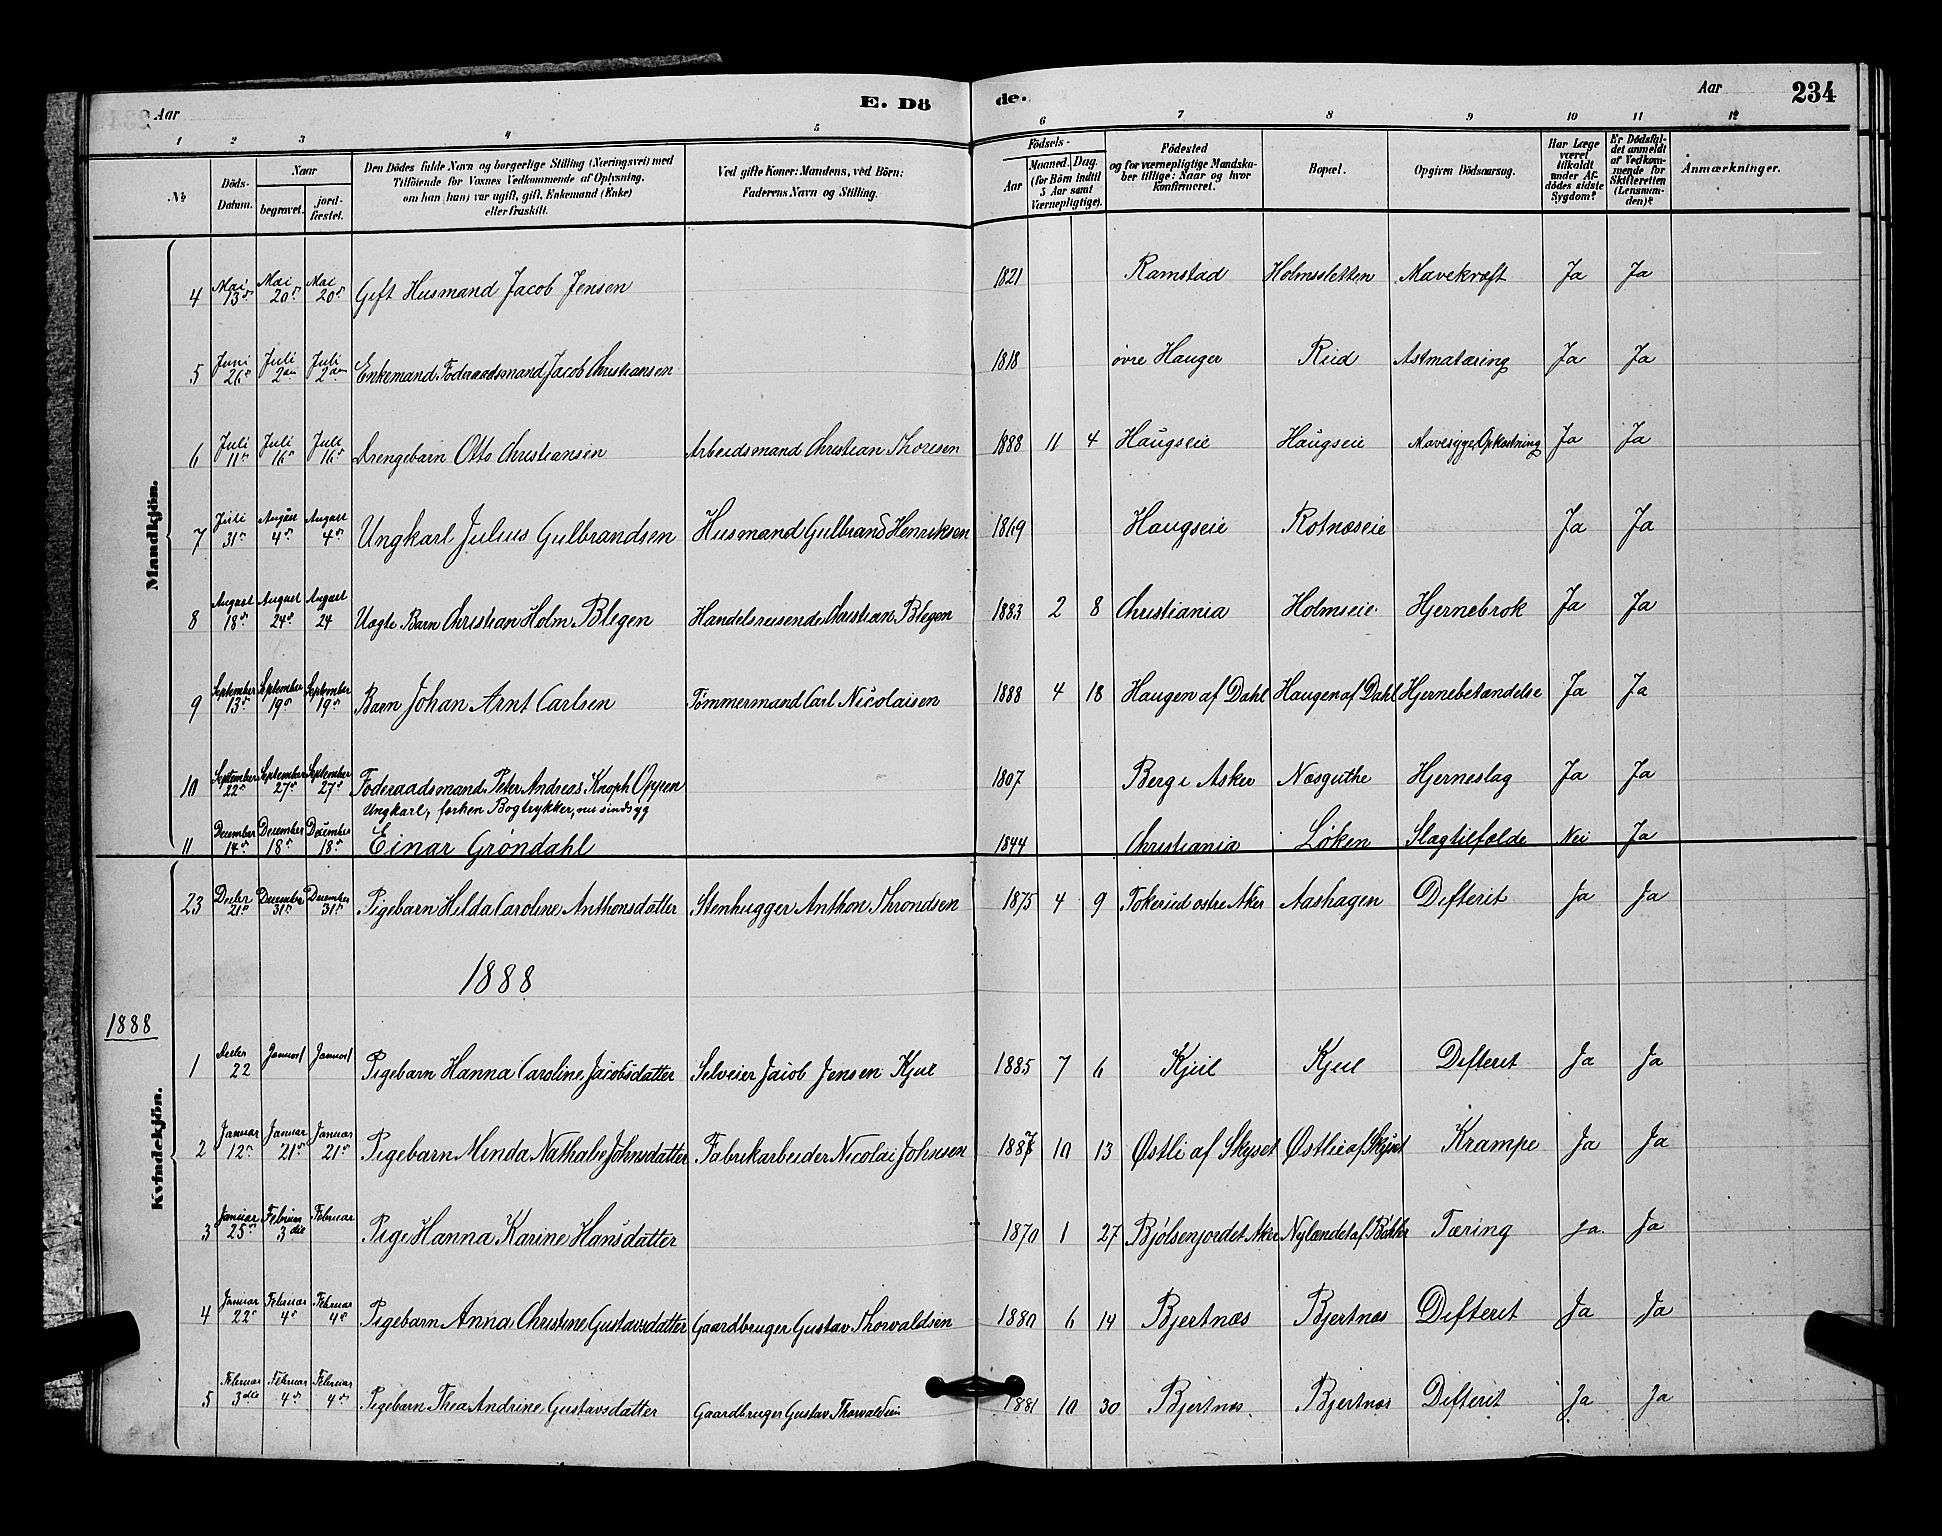 Aar E. Dö de. Aar 234
1 2 3 4 5 6 7 8 9 10 11 12
No
Döds-Datum.
Naar
begravet.
jordfæstet.
Den Dödes fulde Navn og borgerlige Stilling (Næringsvei) med
Tilföiende for Voxnes Vedkommende af Oplysning,
om han (hun) var ugift, gift, Enkemand (Enke)
eller fraskilt.
Ved gifte Koner: Mandens, ved Börn:
Faderens Navn og Stilling.
Födsels-
Aar
Maaned. Dag.
(for Börn indtil
5 Aar samt
Værnepligtige).
Födested
og for værnepligtige Mandska-
ber tillige: Naar og hvor
konfirmeret.
Bopæl.
Opgiven Dödsaarsag.
Har Læge
været
tilkaldt
under Af-
dödes sidste
Sygdom?
Er Dödsfal-
det anmeldt
af Vedkom-
mende for
Skifteretten
(Lensman-
den)?
Anmærkninger.
Mandkjön.
4 Mai 13de Mai 20de Mai 20de Gift Husmand Jacob Jensen 1821 Ramstad Holmssletten Mavekræft Ja Ja
5 Juni 26de Juli 2den Juli 2den Enkemand, Foderaadsmand Jacob Christiansen 1818 øvre Hauger Rud Astmatæring Ja Ja
6 Juli 11te Juli 16de Juli 16de Drengebarn Otto Christiansen Arbeidsmand Christian Thoresen 1888 11 4 Haugseie Haugseie Mavesyge, Opkastning Ja Ja
7 Juli 31te August 4de August 4de Ungkarl Julius Gulbrandsen Husmand Gulbrand Henriksen 1869 Haugseie Rotnæseie Ja Ja
8 August 18de August 24de August 24 Uægte Barn Christian Holm Blegen Handelsreisende Christian Blegen 1883 2 8 Christiania Holmseie Hjernebrok Ja Ja
9 September 13de September 19de September 19de Barn Johan Arnt Carlsen Tømmermand Carl Nicolaisen 1888 4 18 Haugen af Dahl Haugen af Dahl Hjernebetændelse Ja Ja
10 September 22de September 27de September 27de Foderaadsmand Peter Andreas Knoph Oppen 1807 Berg i Asker Næsguthe Hjerneslag Ja Ja
Ungkarl, forhen Bogtrykker, nu sindsyg
11 December 14de December 18de December 18de Einar Grøndahl 1844 Christiania Løken Slagtilfælde Nei Ja
23 Decbr 21de December 31te December 31te Pigebarn Hilda Caroline Anthonsdatter Stenhugger Anthon Throndsen 1875 4 9 Tokerud østre Aker Aashagen Difterit Ja Ja
1888
1888
Kvindekjön.
1 Decbr 22 Januar 1 Januar 1 Pigebarn Hanna Caroline Jacobsdatter Selveier Jacob Jensen Kjul 1885 7 6 Kjul Kjul Difterit Ja Ja
2 Januar 12te Januar 21de Januar 21de Pigebarn Minda Nathalie Johnsdatter Fabrikarbeider Nicolai Johnsen 1887 10 13 Østli af Skyset Østlie af Skyset Krampe Ja Ja
3 Januar 25de Februar 3die Februar Pige Hanna Karine Hansdatter 1870 1 27 Bjølsenjordet Aker Nylandet af Tæring Ja Ja
4 Januar 22de Februar 4de Februar 4de Pigebarn Anna Christine Gustavsdatter Gaardbruger Gustav Thorvaldsen 1880 6 14 Bjertnæs Bjertnæs Difterit Ja Ja
5 Februar 3die Februar 4de Februar 4de Pigebarn Thea Andrine Gustavsdatter Gaardbruger Gustav Thorvaldsen 1881 10 30 Bjertnæs Bjertnæs Difterit Ja Ja